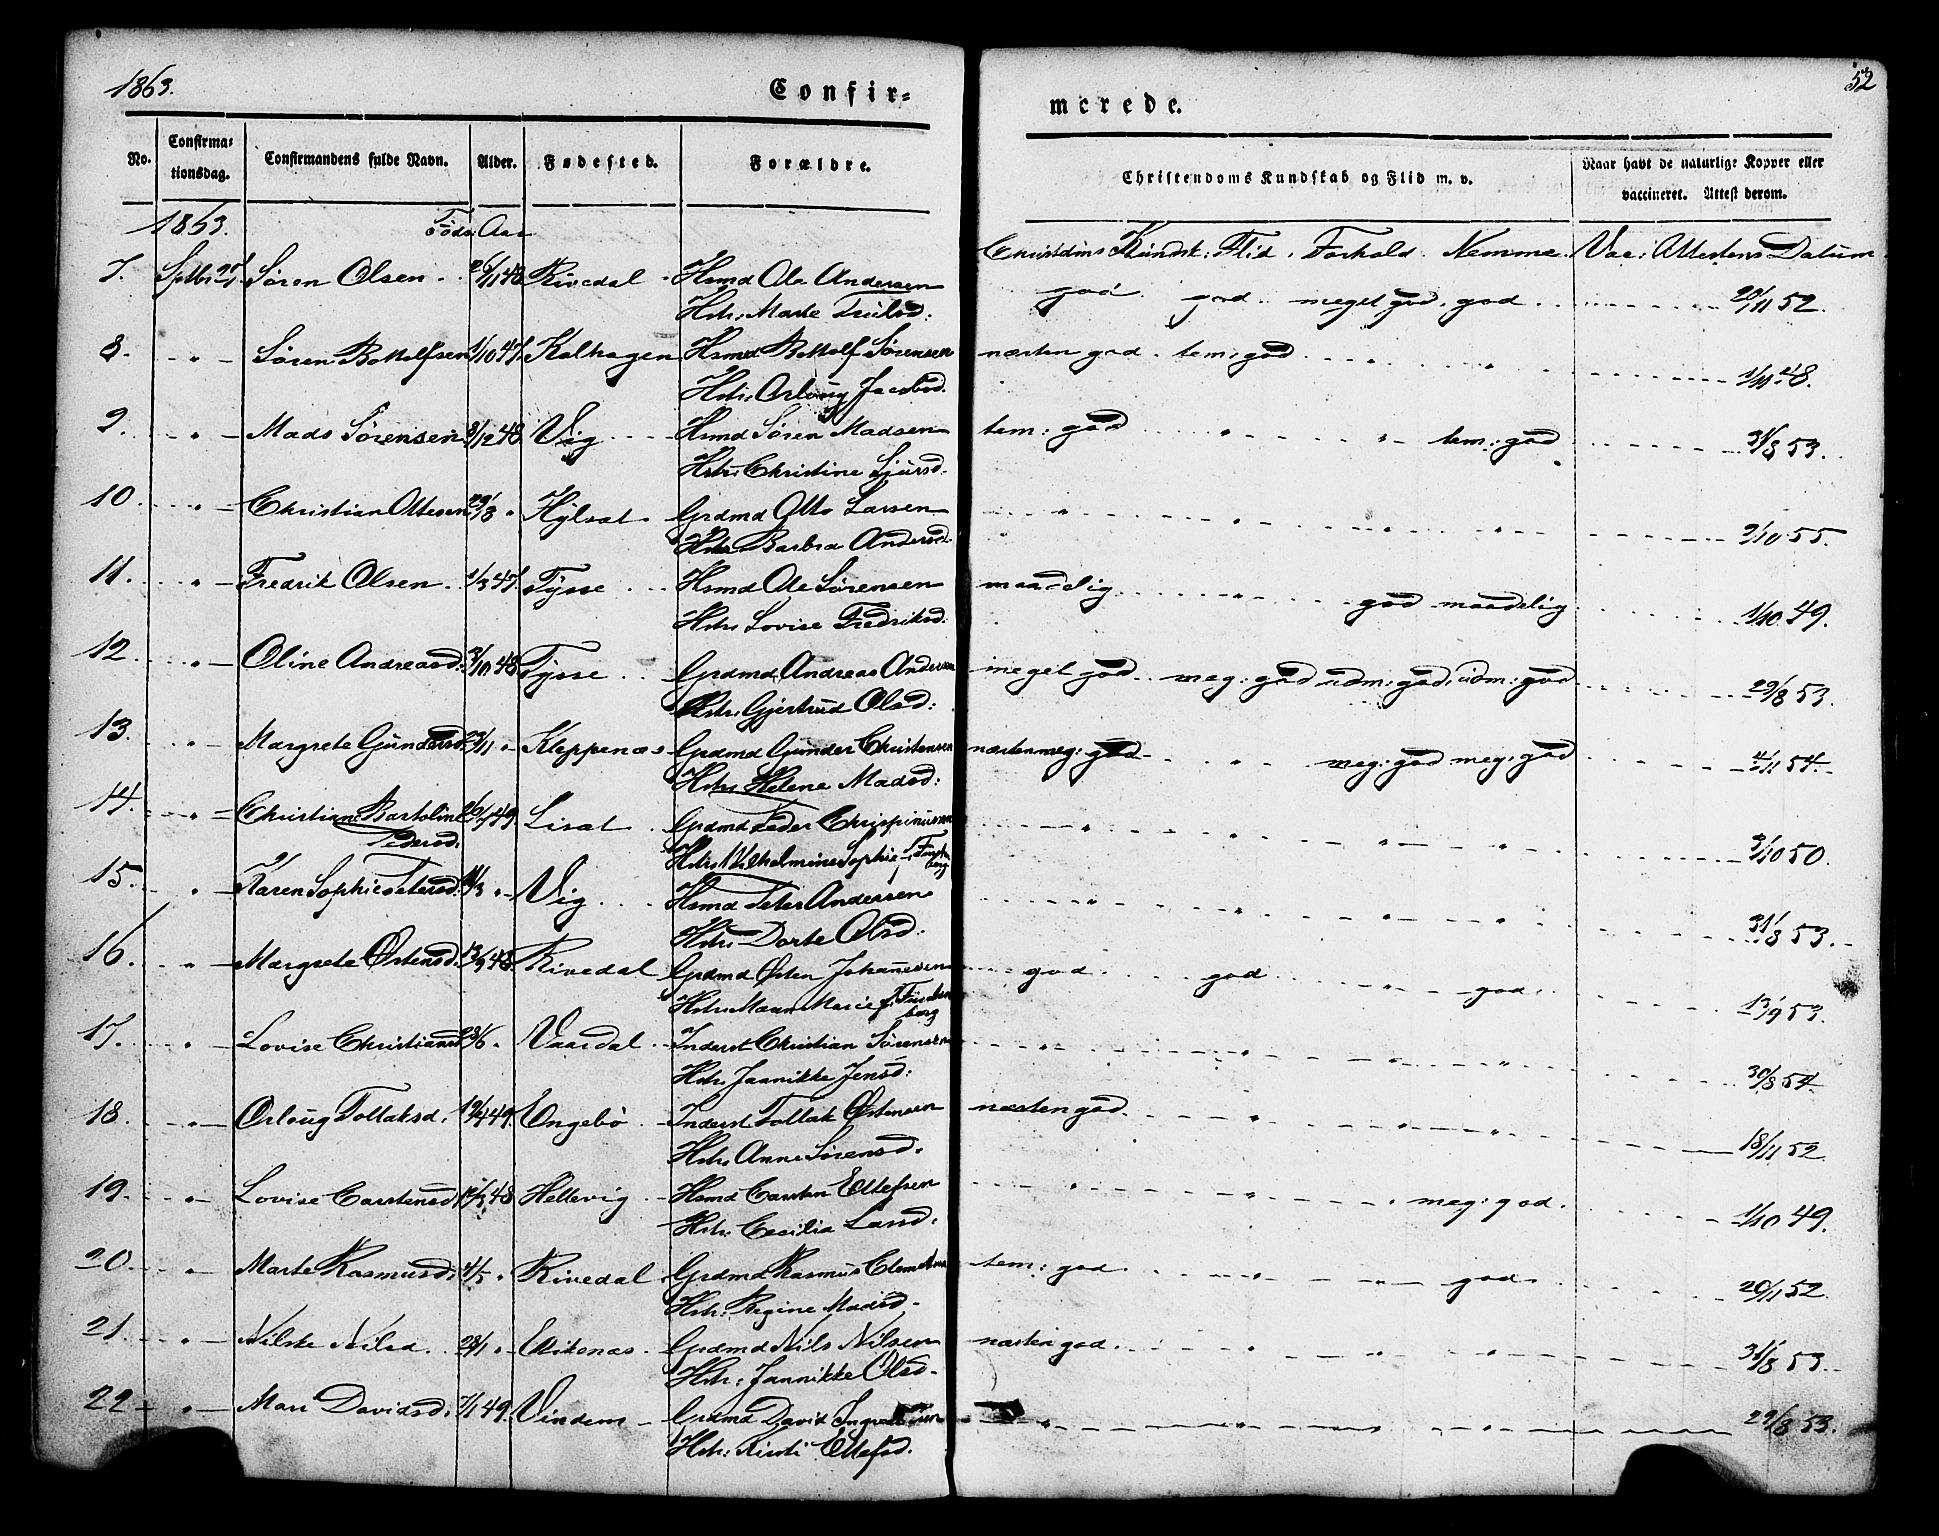 1863.
Confir=
merede.
52
No.
Confirma=
tionsdag.
Confirmandens fulde Navn.
Alder.
Fødested.
Forældre.
Christendoms Kundskab og Flid m. v.
Naar havt de naturlige Kopper eller
vaccineret. Attest derom.
1863. Føds: Aar
Christdms Kundsk: Flid. Forhold. Nemme. Vac: Attestens Datum
7. Sptbr 27 Søren Olsen 48 Rivedal Hsmd Ole Andersen god god meget god god 20/11 52.
Hstr: Marte
8. " Søren Bottolfsen 1/10 47. Kalhagen Hsmd Bottolf Sørensen næsten god tem: god " " 1/11 48.
Hstr: Orloug Jacobsd.
9. " Mads Sørensen 3/12 48 Vig Hsmd Søren Madsen tem: god " " tem: god 31/8 53.
Hstr: Christine Sjursd.
10. " Christian Ottesen 29/8 " Hylsat Grdmd Otto Larsen " " " " 2/10 55.
Hstr: Barbra Andersd.
11. " Fredrik Olsen 1/3 47. Tysse Hsmd Ole Sørensen maadelig " god maadelig 1/10 49.
Hstr: Lovise Fredriksd.
12. " Oline Andreasd. 3/10 48 Tysse Grdmd Andreas Andersen meget god meg: god udm: god udm: god 29/8 53.
Hstr: Gjertrud Olsd:
13. " Margrete Gundersd. 23/11 " Kleppenæs Grdmd Gunder Christensen næsten meg: god " meg: god meg: god 4/11 54.
Hstr: Helene Madsd:
14. " Christiane Bartoline 49. Lisat Grdmd Peder Chrispinussen " " " " 2/10 50.
Pedersd. Hstr: Vilhelmine Sophie
15. " Karen Sophie Petersd. " Vig Hsmd Peter Andersen " " " " 31/8 53.
Hstr: Dorte Olsd.
16. " Margrete Østensd. 13/9 48. Rivedal Grdmd Østen Johannesen god god " god 13/9 53.
Hstr: Maren Marie f.
17. " Lovise Christiansd 23/6 " Vaardal Inderst Christian Sørensen " " " " 30/8 54
Hstr: Jannikke Jensd:
18. " Orloug Tollaksd. 49. Engebø Inderst Tollak Østensen næsten god " " " 18/11 52.
Hstr: Anne Sørensd.
19. " Lovise Carstensd. 48 Hellevig Hsmd Carsten Ellefsen " " " meg: god. 1/10 49.
Hstr: Cecilia Larsd.
20. " Marte Rasmusd. 4/5 " Rivedal Grdmd Rasmus Clemetsen tem: god " " god 20/11 52.
Hstr: Regine Madsd.
21. " Nilske Nilsd. 28/1 " Eikenæs Grdmd Nils Nilsen næsten god " " " 31/8 53.
Hstr: Jannikke Olsd.
22 " Mari Davidsd. 7/1 49. Vindem Grdmd David " " " " 29/8 53.
Hstr: Kirsti Ellefsd.